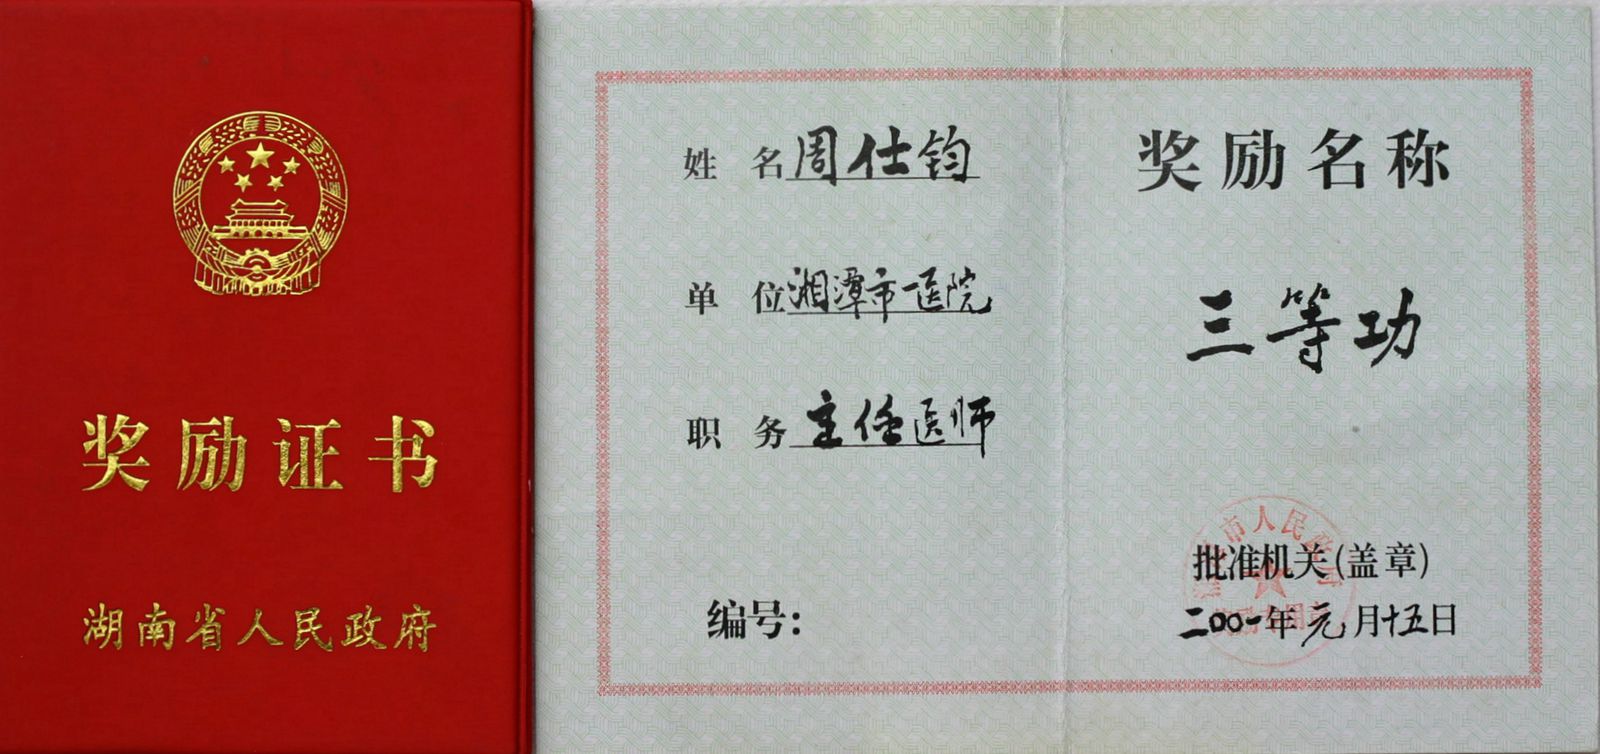 奖励证书
湖南省人民政府
姓名 周仕钧
单位 湘潭市一医院
职务 主任医师
编号:
奖励名称
三等功
市人民政府
批准机关(盖章)
二00一年元月十五日